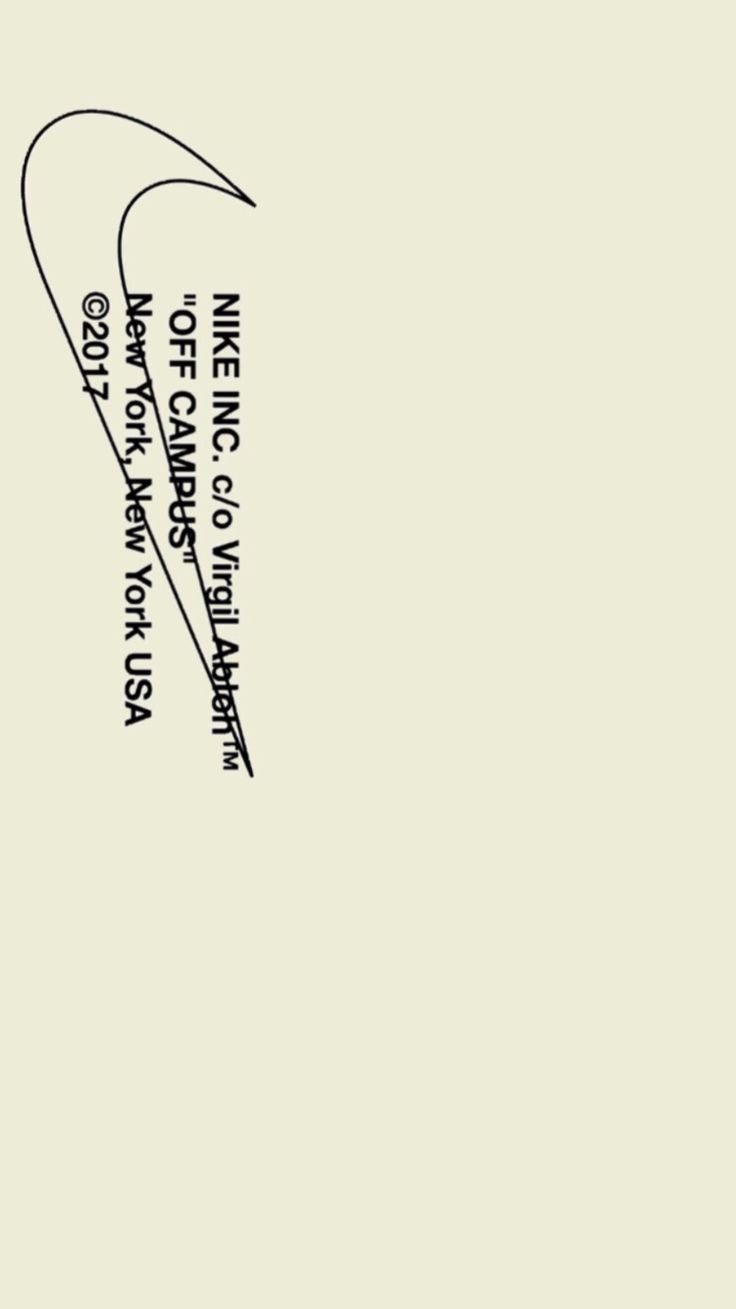 NIKE INC. c/o Virgil Abloh™
"OFF CAMPUS"
New York, New York USA
©2017